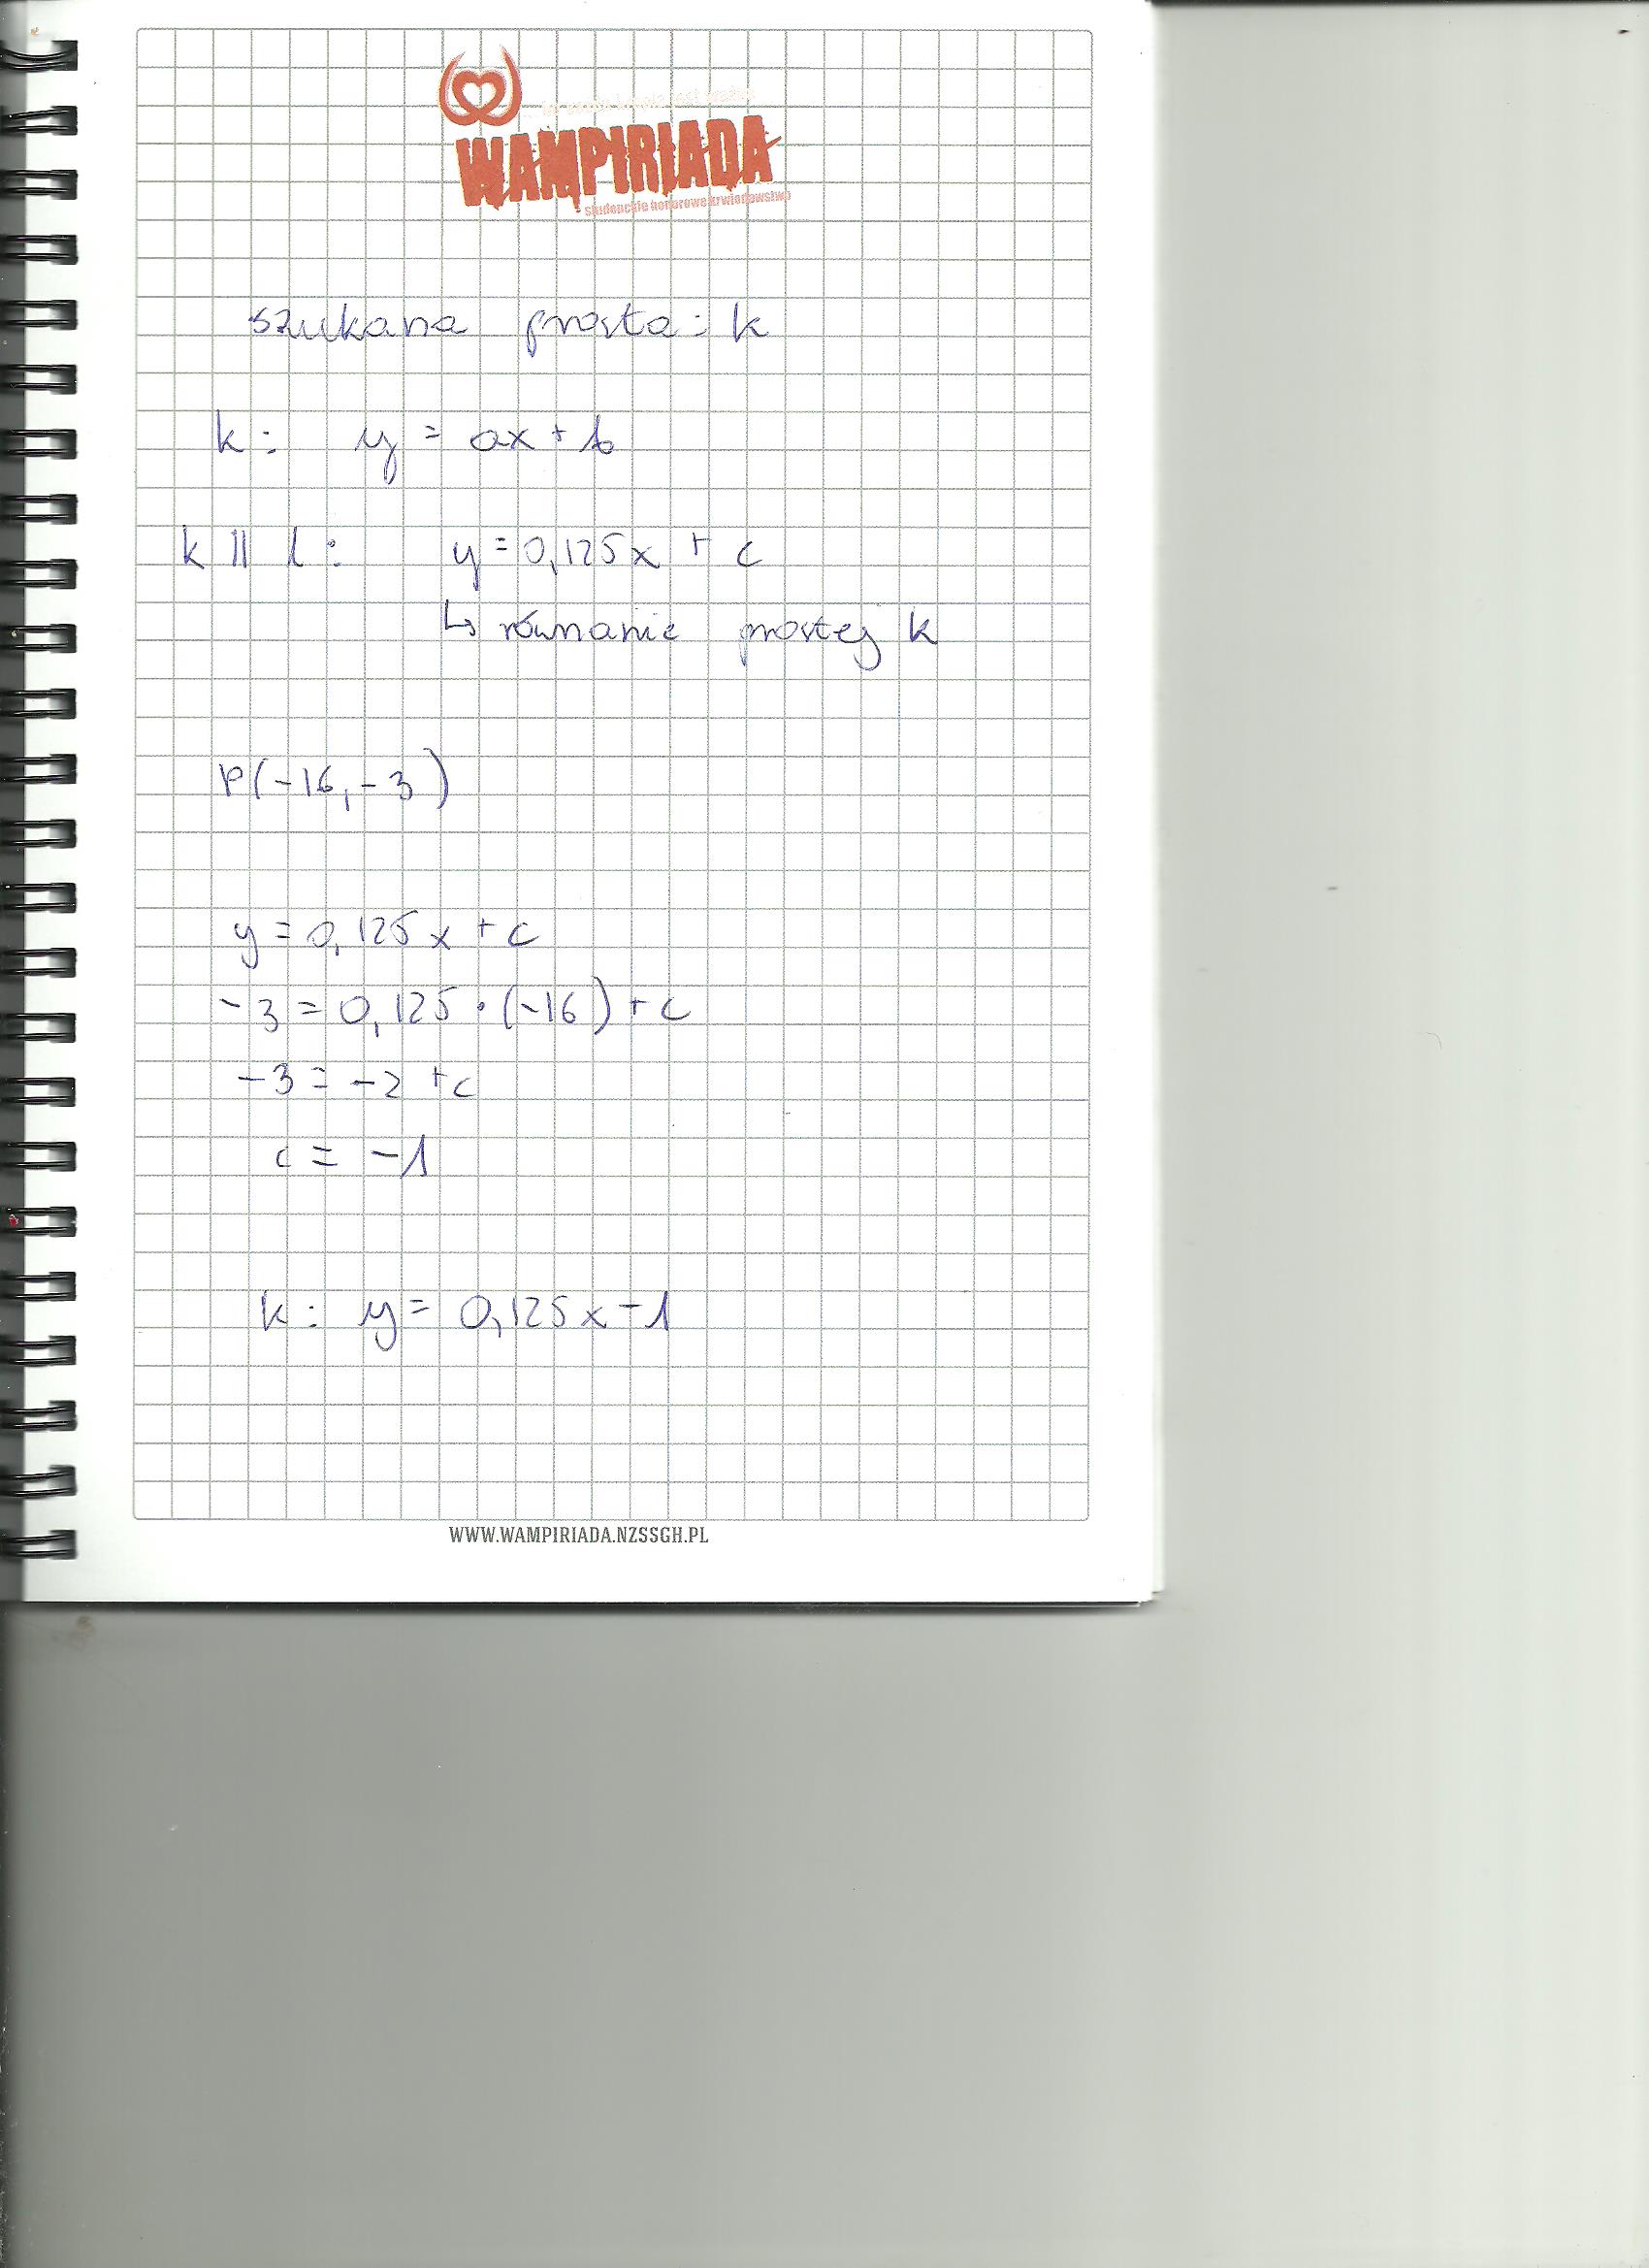 WAMPIRIADA
studenckie honorowe krwiodawstwo
szukana prosta: k
k: y = ax + b
k || l: y = 0,125x + c
↳ równanie prostej k
P(-16, -3)
y = 0,125x + c
-3 = 0,125 · (-16) + c
-3 = -2 + c
c = -1
k: y = 0,125x - 1
WWW.WAMPIRIADA.NZSSGH.PL